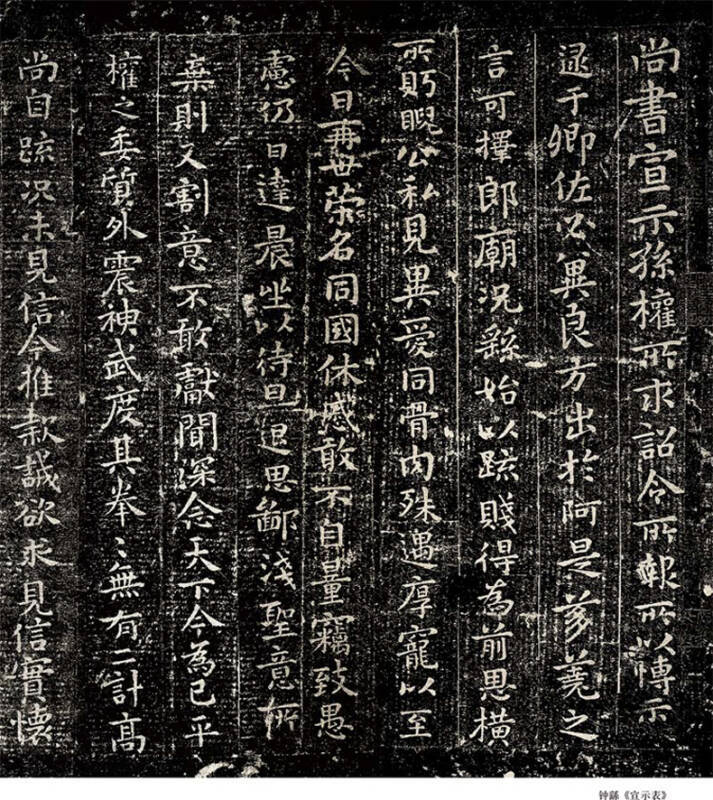 尚書宣示孫權所求詔令所報所以博示
逮于卿佐必冀良方出於阿是芻蕘之
言可擇郎廟況繇始以疏賤得為前思橫
所眄睨公私見異愛同骨肉殊遇厚寵以至
今日再世榮名同國休慼敢不自量竊致愚
慮仍日達晨坐以待旦退思鄙淺聖意所
棄則又割意不敢獻聞深念天下今為已平
權之委質外震神武度其拳〻無有二計高
尚自疏況未見信今推款誠欲求見信實懷
钟繇《宣示表》